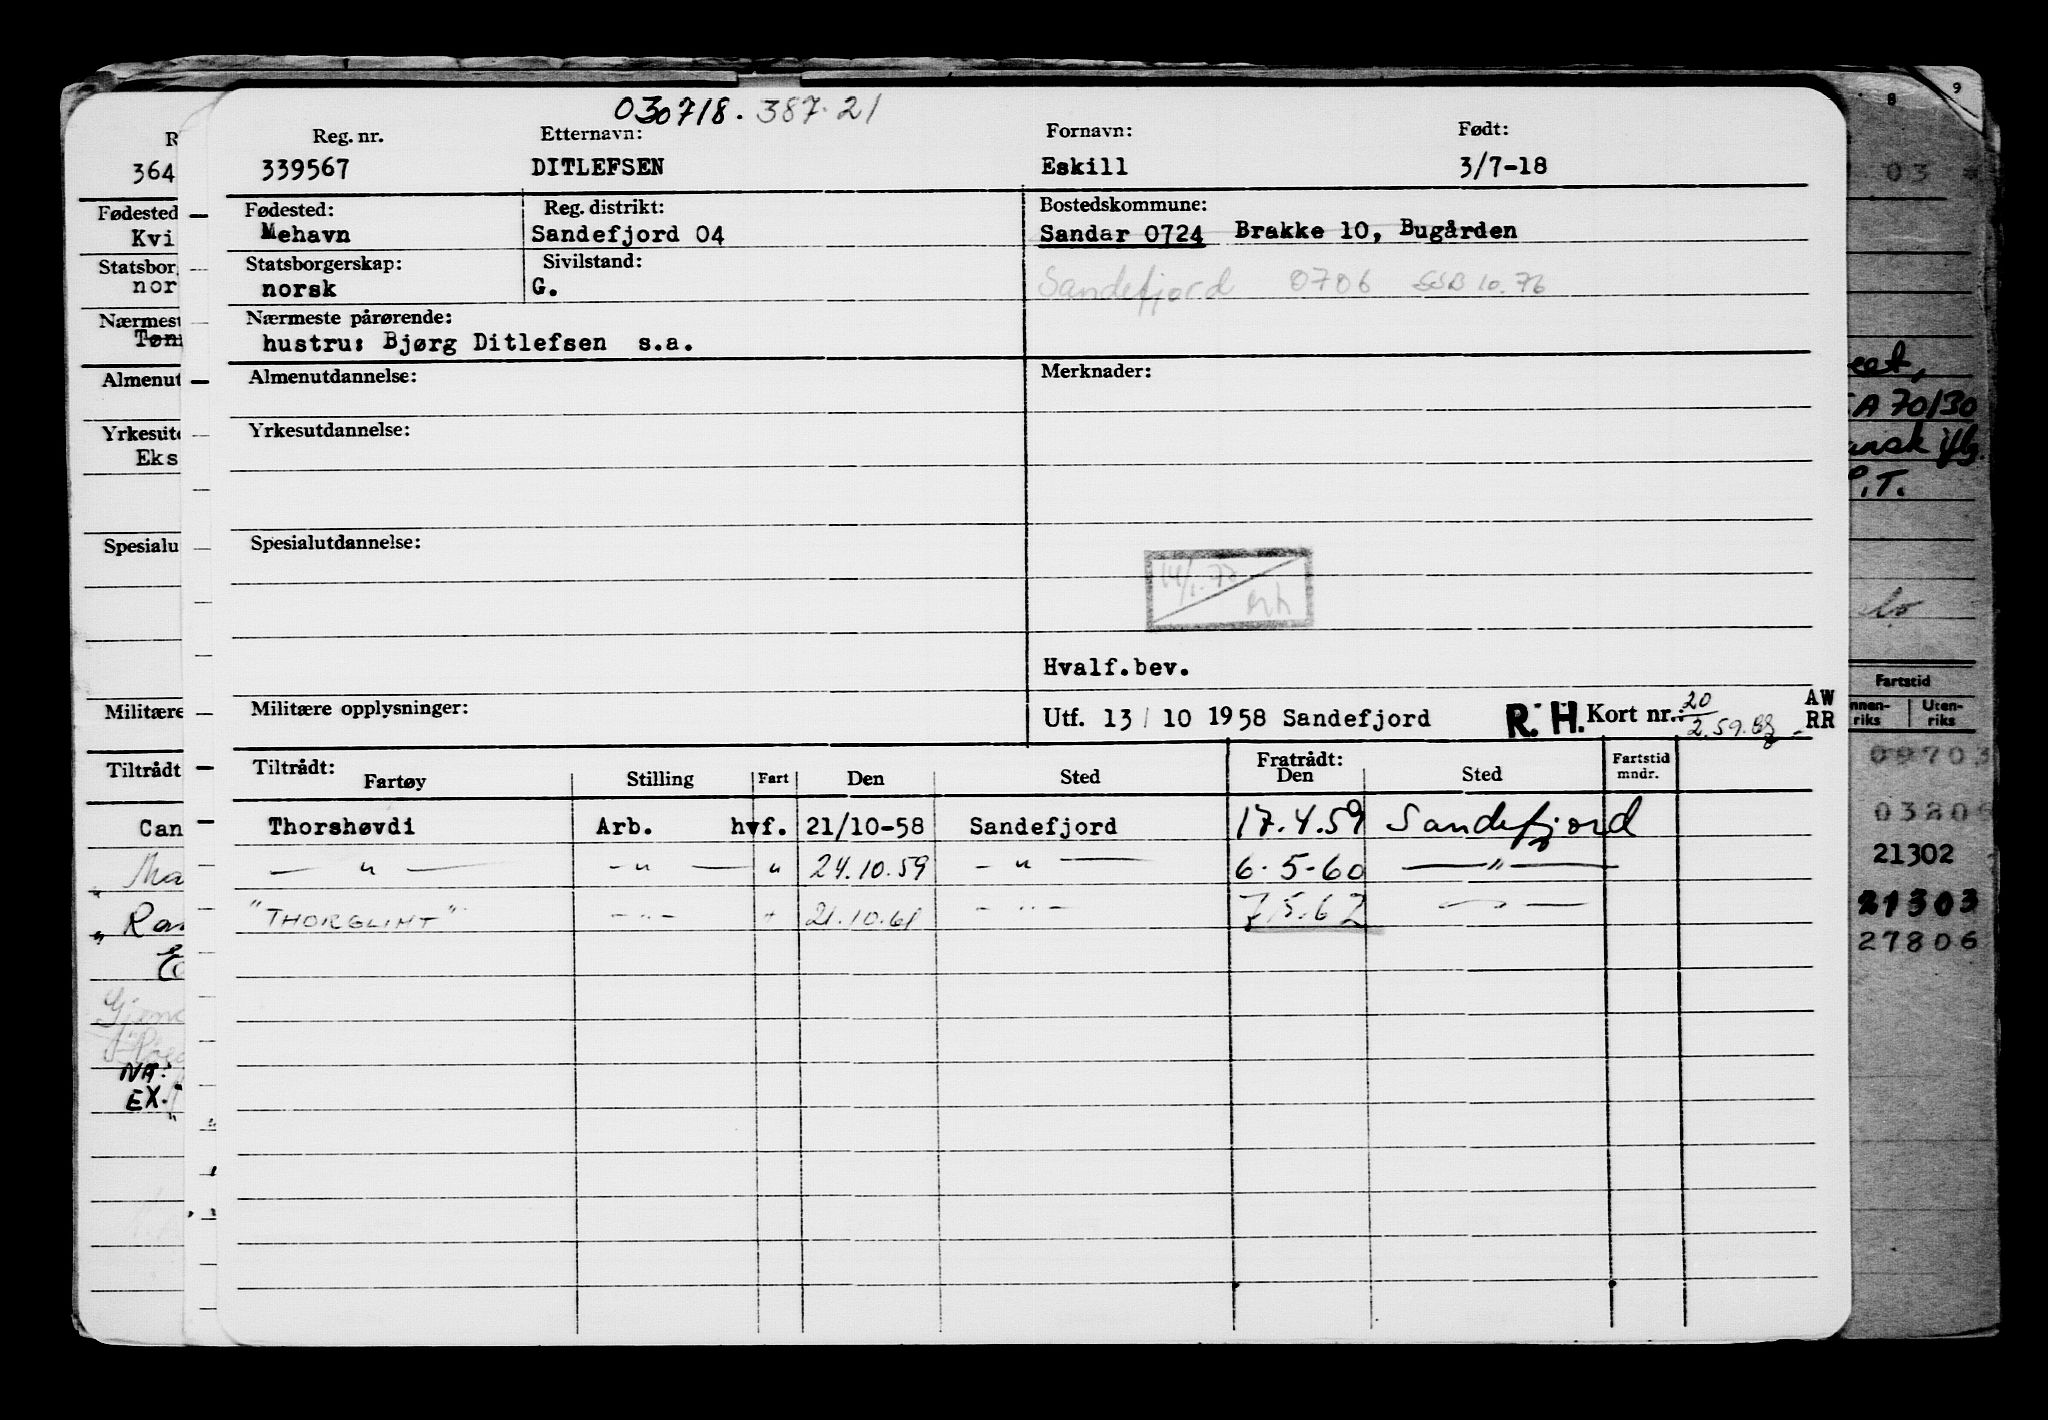 030718.387.21
Reg. nr. Etternavn: Fornavn: Født:
339567 DITLEFSEN Eskill 3/7-18
Fødested: Reg. distrikt: Bostedskommune:
Mehavn Sandefjord 04 Sandar 0724 Brakke 10, Bugården
Statsborgerskap: Sivilstand:
norsk G. Sandefjord 0706 SSB 10.76
Nærmeste pårørende:
hustru: Bjørg Ditlefsen s.a.
Almenutdannelse: Merknader:
Yrkesutdannelse:
Spesialutdannelse:
Hvalf.bev.
Militære opplysninger: Utf. 13/10 1958 Sandefjord R.H. Kort nr.: 20/2.59. AW
RR
Tiltrådt: Fratrådt: Fartstid
Fartøy Stilling Fart Den Sted Den Sted mndr.
Thorshøvdi Arb. hvf. 21/10-58 Sandefjord 17.4.59 Sandefjord
— " — - " — " 24.10.59 - " — 6.5-60 — " —
"THORGLIMT" - " - " 21.10.61 - " - 7.5.62 — " —
364
Fødested
Kvi
Statsbor
nor
Nærmest
Almenut
Yrkesut
Eks
Spesialu
Militære
Tiltrådt
Can
Ma
NA:
EX.
8 9
03
A 70/30
P.T.
Fartstid
nnen-riks Uten-riks
09703
21302
21303
27806